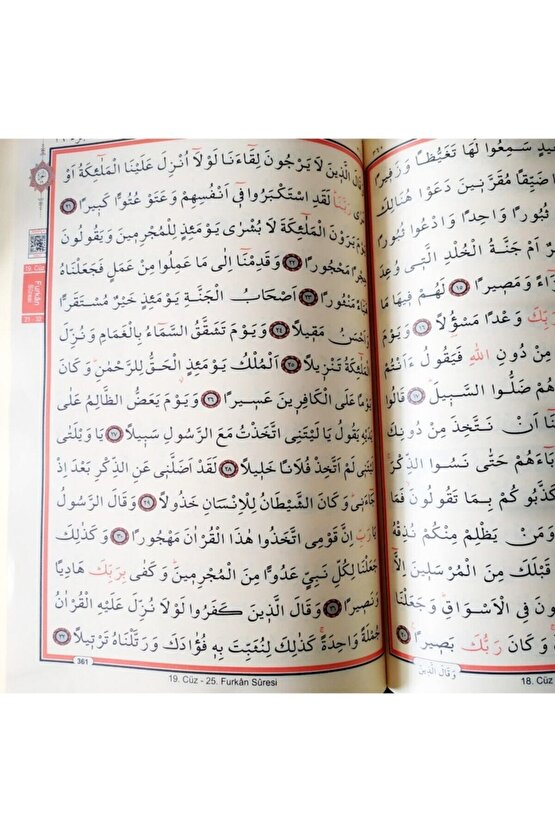 سَمِعُوا لَهَا تَغَيُّظًا وَزَفِيرًا
ضَيِّقًا مُقَرَّنِينَ دَعَوْا هُنَالِكَ
ثُبُورًا وَاحِدًا وَادْعُوا ثُبُورًا
اَمْ جَنَّةُ الْخُلْدِ الَّتِي وُعِدَ
وَمَصِيرًا ﴿١٥﴾ لَهُمْ فِيهَا مَا
رَبِّكَ وَعْدًا مَسْؤُلًا ﴿١٦﴾ وَيَوْمَ
مِنْ دُونِ اللّٰهِ فَيَقُولُ ءَاَنْتُمْ
هُمْ ضَلُّوا السَّبِيلَ ﴿١٧﴾ قَالُوا
اَنْ نَتَّخِذَ مِنْ دُونِكَ
حَتّٰى نَسُوا الذِّكْرَ
كَذَّبُوكُمْ بِمَا تَقُولُونَ فَمَا
وَمَنْ يَظْلِمْ مِنْكُمْ نُذِقْهُ
قَبْلَكَ مِنَ الْمُرْسَلِينَ اِلَّا
فِي الْاَسْوَاقِ وَجَعَلْنَا
وَكَانَ رَبُّكَ بَصِيرًا ﴿٢٠﴾
وَقَالَ الَّذِينَ
18. Cüz
وَقَالَ الَّذِينَ لَا يَرْجُونَ لِقَاءَنَا لَوْلَا اُنْزِلَ عَلَيْنَا الْمَلٰئِكَةُ اَوْ
نَرٰى رَبَّنَا لَقَدِ اسْتَكْبَرُوا فِي اَنْفُسِهِمْ وَعَتَوْ عُتُوًّا كَبِيرًا ﴿٢١﴾
يَوْمَ يَرَوْنَ الْمَلٰئِكَةَ لَا بُشْرٰى يَوْمَئِذٍ لِلْمُجْرِمِينَ وَيَقُولُونَ
حِجْرًا مَحْجُورًا ﴿٢٢﴾ وَقَدِمْنَا اِلٰى مَا عَمِلُوا مِنْ عَمَلٍ فَجَعَلْنَاهُ
هَبَاءً مَنْثُورًا ﴿٢٣﴾ اَصْحَابُ الْجَنَّةِ يَوْمَئِذٍ خَيْرٌ مُسْتَقَرًّا
وَاَحْسَنُ مَقِيلًا ﴿٢٤﴾ وَيَوْمَ تَشَقَّقُ السَّمَاءُ بِالْغَمَامِ وَنُزِّلَ
الْمَلٰئِكَةُ تَنْزِيلًا ﴿٢٥﴾ اَلْمُلْكُ يَوْمَئِذٍ الْحَقُّ لِلرَّحْمٰنِ وَكَانَ
يَوْمًا عَلَى الْكَافِرِينَ عَسِيرًا ﴿٢٦﴾ وَيَوْمَ يَعَضُّ الظَّالِمُ عَلٰى
يَدَيْهِ يَقُولُ يَا لَيْتَنِي اتَّخَذْتُ مَعَ الرَّسُولِ سَبِيلًا ﴿٢٧﴾ يَا وَيْلَتٰى
لَيْتَنِي لَمْ اَتَّخِذْ فُلَانًا خَلِيلًا ﴿٢٨﴾ لَقَدْ اَضَلَّنِي عَنِ الذِّكْرِ بَعْدَ اِذْ
جَاءَنِي وَكَانَ الشَّيْطَانُ لِلْاِنْسَانِ خَذُولًا ﴿٢٩﴾ وَقَالَ الرَّسُولُ
يَا رَبِّ اِنَّ قَوْمِي اتَّخَذُوا هٰذَا الْقُرْاٰنَ مَهْجُورًا ﴿٣٠﴾ وَكَذٰلِكَ
جَعَلْنَا لِكُلِّ نَبِيٍّ عَدُوًّا مِنَ الْمُجْرِمِينَ وَكَفٰى بِرَبِّكَ هَادِيًا
وَنَصِيرًا ﴿٣١﴾ وَقَالَ الَّذِينَ كَفَرُوا لَوْلَا نُزِّلَ عَلَيْهِ الْقُرْاٰنُ
جُمْلَةً وَاحِدَةً كَذٰلِكَ لِنُثَبِّتَ بِهِ فُؤَادَكَ وَرَتَّلْنَاهُ تَرْتِيلًا ﴿٣٢﴾
361
19. Cüz - 25. Furkân Sûresi
19. Cüz
Furkân
Sûresi
21 - 32